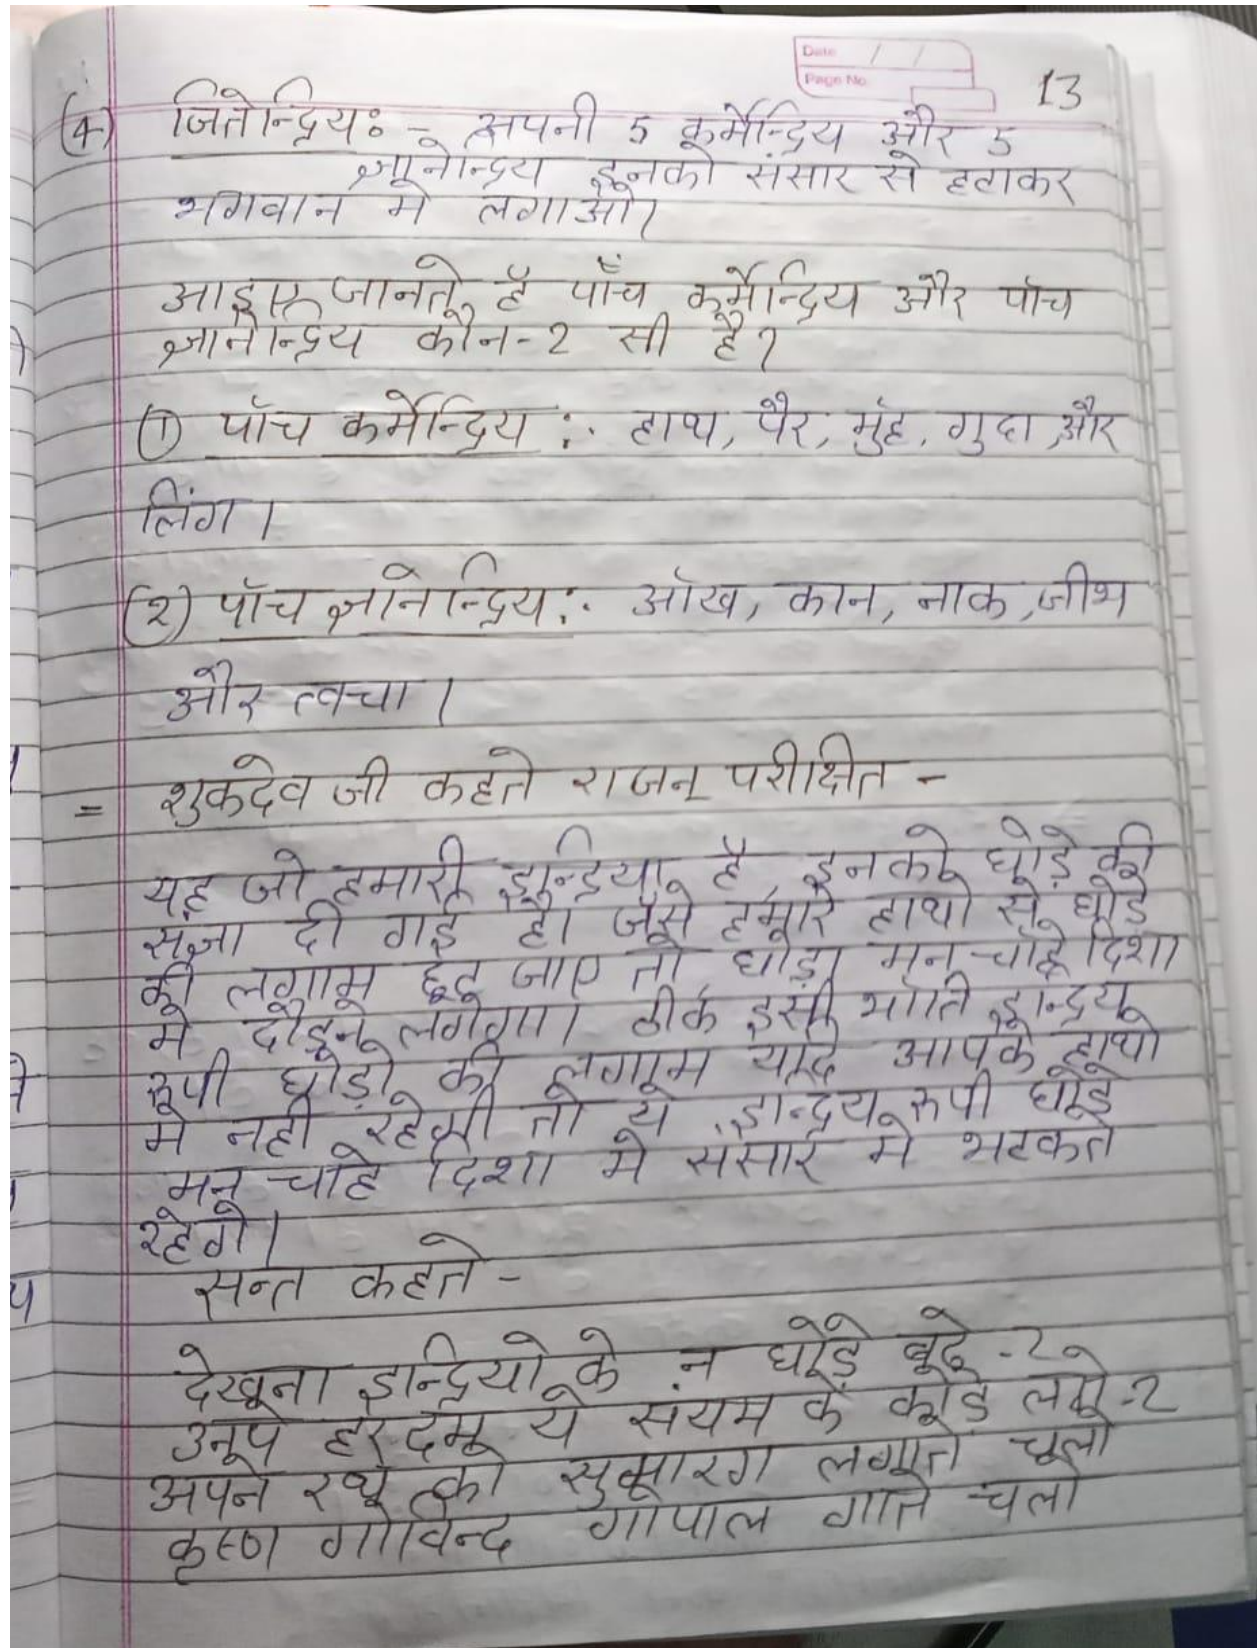 Date / /
Page No
13
(4) जितेन्द्रियः - अपनी 5 कर्मेन्द्रिय और 5
ज्ञानेन्द्रिय इनको संसार से हटाकर
भगवान मे लगाओ।
आइए जानते है पाँच कर्मेन्द्रिय और पाँच
ज्ञानेन्द्रिय कौन-2 सी है?
① पाँच कर्मेन्द्रिय :- हाथ, पैर, मुंह, गुदा और
लिंग।
(२) पाँच ज्ञानेन्द्रिय :- आँख, कान, नाक, जीभ
और त्वचा।
= शुकदेव जी कहते राजन् परीक्षित -
यह जो हमारी इन्द्रिया है, इनको घोड़े की
सज्ञा दी गई है। जैसे हमारे हाथो से घोड़े
की लगाम छूट जाए तो घोड़ा मन चाहे दिशा
मे दौड़ने लगेगा। ठीक इसी भाँति इन्द्रिय
रूपी घोड़ो की लगाम यदि आपके हाथो
मे नही रहेगी तो ये इन्द्रिय रूपी घोड़े
मन चाहे दिशा मे संसार मे भटकते
रहेगे।
सन्त कहते -
देखना इन्द्रियो के न घोड़े बढ़े -2
उनपे हरदम ये संयम के कोड़े लगे -2
अपने रथ को सुमारग लगाते चलो
कृष्ण गोविन्द गोपाल गाते चलो